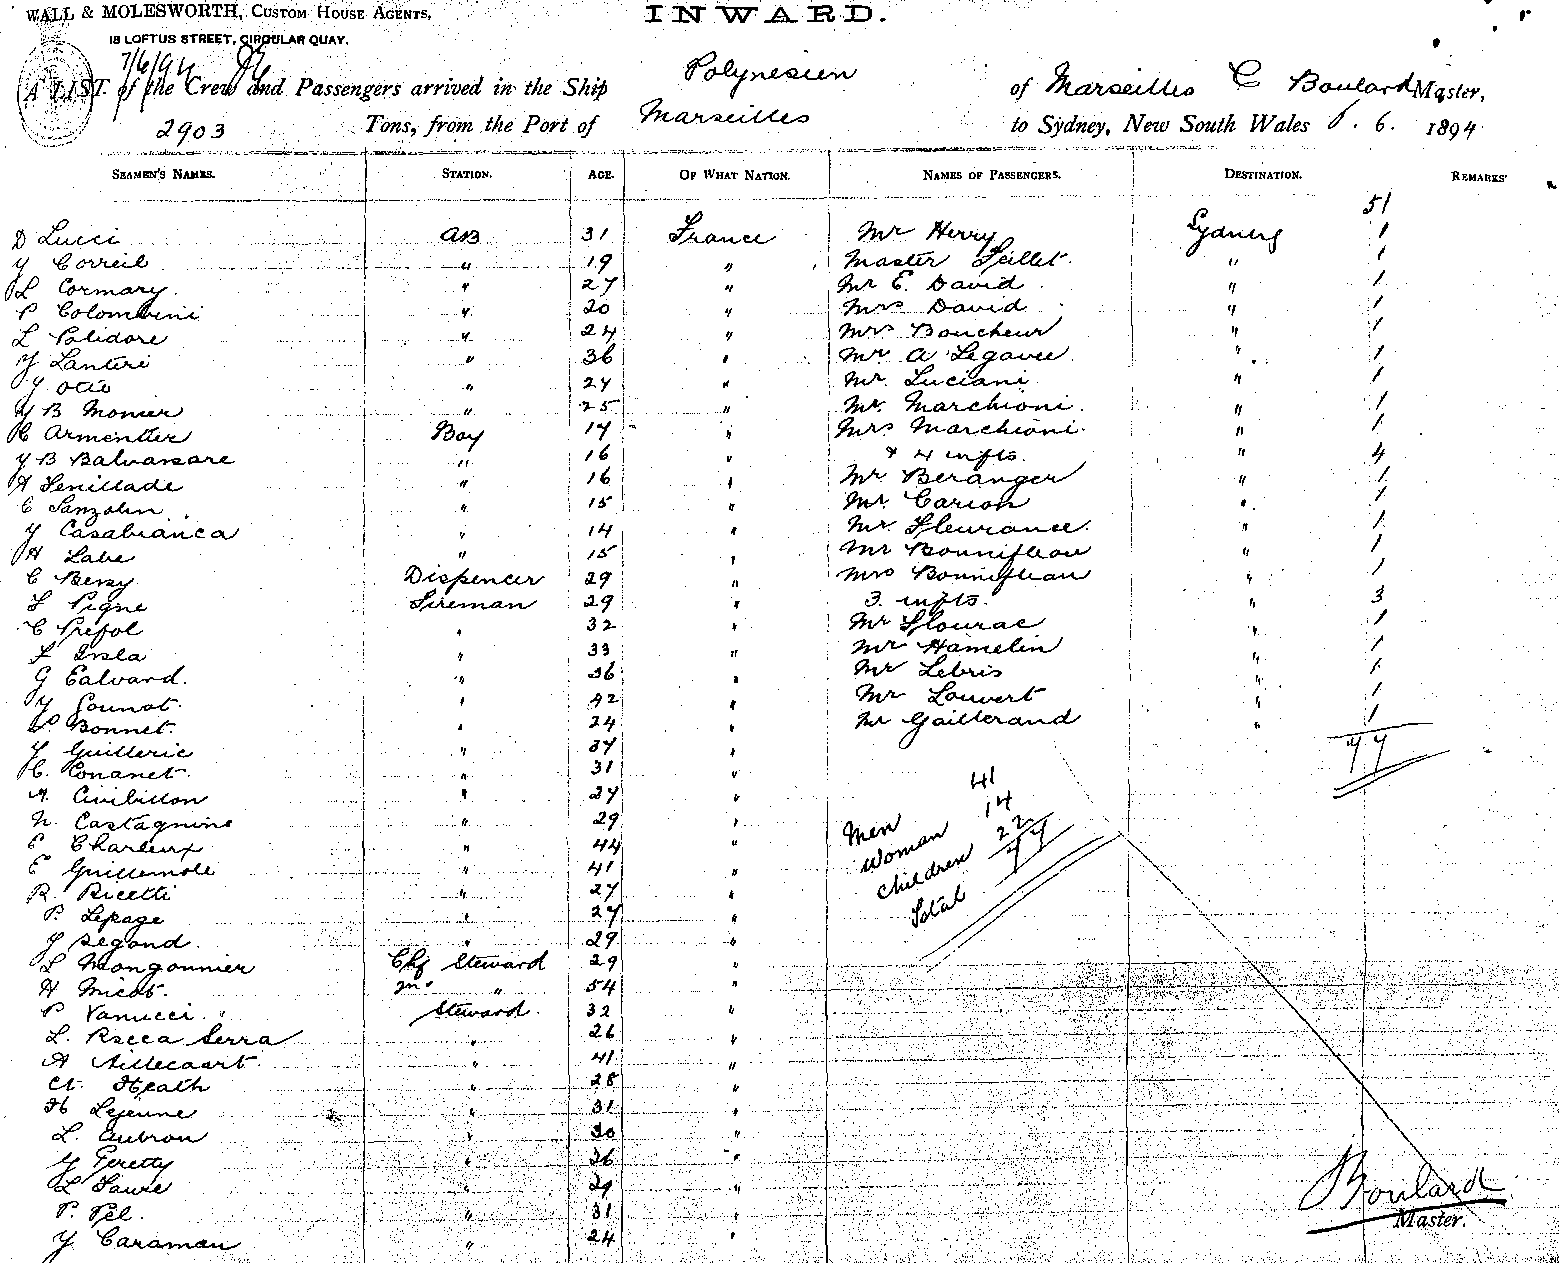 WALL & MOLESWORTH, CUSTOM HOUSE AGENTS,
INWARD.
18 LOFTUS STREET, CIRCULAR QUAY.
7/6/94
A LIST of the Crew and Passengers arrived in the Ship Polynesien of Marseilles C Boulard Master,
2903 Tons, from the Port of Marseilles to Sydney, New South Wales 6. 1894
SEAMEN'S NAMES. STATION. AGE. OF WHAT NATION. NAMES OF PASSENGERS. DESTINATION. REMARKS
51
D Lucci AB 31 France Mr Henry Sydney 1
Y Correil " 19 " Master Seillet " 1
L Cormary " 27 " Mr E. David " 1
P Colombini " 20 " Mrs David " 1
L Polidore " 24 " Mrs Boucheur " 1
Y Lanteri " 36 " Mr A Legavee " 1
Y Otto " 27 " Mr. Luciani " 1
Y B Monier " 25 " Mr. Marchioni " 1
C Armentier Boy 14 " Mrs Marchioni " 1
Y B Balvassare " 16 " & 4 infts. " 4
A Senillade " 16 " Mr Beranger " 1
C Sanzolin " 15 " Mr. Carion " 1
Y Casabianca " 14 " Mr Fleurance " 1
A Labe " 15 " Mr Bonnifleau " 1
C Bersy Dispencer 29 " Mrs Bonnifleau " 1
F Pigne Fireman 29 " 3 infts. " 3
C Prefol " 32 " Mr Flourac " 1
F Insla " 33 " Mr Hamelin " 1
G Ealvard. " 36 " Mr Lebris " 1
Y Gounot " 42 " Mr Louvert " 1
P. Bonnet. " 24 " Mr Gaillerand " 1
Y Guilleric " 37 " 77
C. Conanet. " 31 "
A. Civilitton " 27 "
N. Castagnine " 29 "
E Charleux " 44 "
E Guillemole " 41 "
R. Ricetti " 27 "
P. Lepage " 27 "
Y Segond. " 29 "
Men 41
Woman 14
Children 22
Total 77
L Mongonnier Chf Steward 29 "
A Micot. " 54 "
P Vanucci. Steward. 32 "
L. Rocca Serra " 26 "
A Aillecaart " 41 "
Ct. Heath " 28 "
H Lejeune " 31 "
L. Aubron " 30 "
Y Feretty " 36 "
L Faure " 29 "
P. Pel. " 31 "
Y Caraman " 24 "
Boulard
Master.